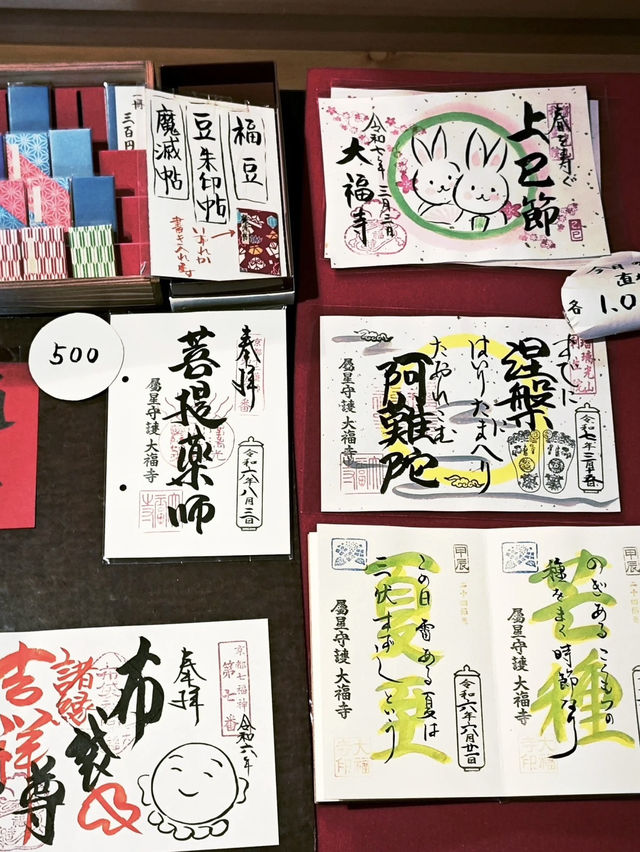 一冊
三百円
福豆
豆朱印帖
魔滅帖
いずれか
書き入れます
春を寿ぐ
上巳節
令和七年 三月三日
大福寺
各
1.0
500
奉拝
菩提薬師
屬星守護 大福寺
令和六年八月三日
すでに
涅槃
はいりたまへり
たおれこむ
阿難陀
屬星守護 大福寺
令和七年三月春
甲辰
芒種
のぎある こくもつの
種をまく 時節なり
屬星守護 大福寺
甲辰
夏至
この日 雷ある 夏は
三伏すずし という
屬星守護 大福寺
令和六年六月廿一日
京都七福神
第七番
令和六年
奉拝
布袋尊
諸縁
吉祥